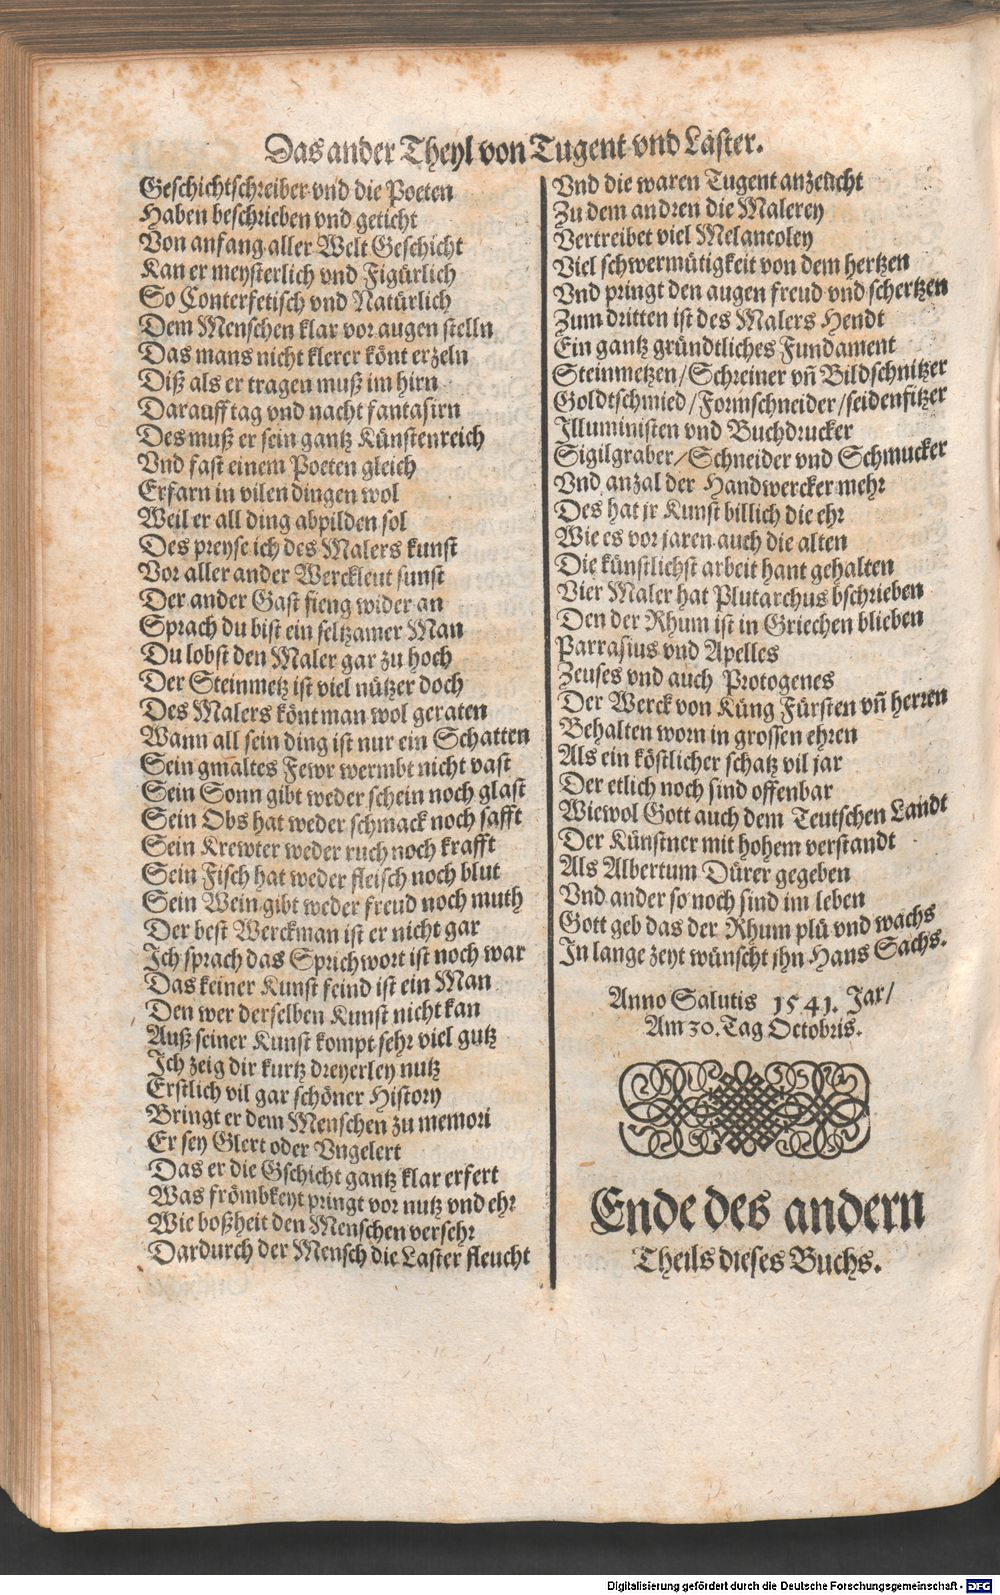 Das ander Theyl von Tugent vnd Laster.
Geschichtschreiber vnd die Poeten
Haben beschrieben vnd geticht
Von anfang aller Welt Geschicht
Kan er meysterlich vnd Figürlich
So Conterfetisch vnd Natürlich
Dem Menschen klar vor augen stelln
Das mans nicht klerer könt erzeln
Diß als er tragen muß im hirn
Darauff tag vnd nacht fantasirn
Des muß er sein gantz Künstenreich
Vnd fast einem Poeten gleich
Erfarn in vilen dingen wol
Weil er all ding abpilden sol
Des preyse ich des Malers kunst
Vor aller ander Werckleut sunst
Der ander Gast fieng wider an
Sprach du bist ein seltzamer Man
Du lobst den Maler gar zu hoch
Der Steinmetz ist viel nützer doch
Des Malers könt man wol geraten
Wann all sein ding ist nur ein Schatten
Sein gmaltes Fewr wermbt nicht vast
Sein Sonn gibt weder schein noch glast
Sein Obs hat weder schmack noch safft
Sein Krewter weder ruch noch krafft
Sein Fisch hat weder fleisch noch blut
Sein Wein gibt weder freud noch muth
Der best Werckman ist er nicht gar
Ich sprach das Sprichwort ist noch war
Das keiner Kunst feind ist ein Man
Den wer derselben Kunst nicht kan
Auß seiner Kunst kompt sehr viel gutz
Ich zeig dir kurtz dreyerley nutz
Erstlich vil gar schöner History
Bringt er dem Menschen zu memori
Er sey Glert oder Vngelert
Das er die Gschicht gantz klar erfert
Was frömbkeyt pringt vor nutz vnd ehr
Wie boßheit den Menschen versehr
Dardurch der Mensch die Laster fleucht
Vnd die waren Tugent anzeucht
Zu dem andren die Malerey
Vertreibet viel Melancoley
Viel schwermütigkeit von dem hertzen
Vnd pringt den augen freud vnd schertzen
Zum dritten ist des Malers Hendt
Ein gantz gründtliches Fundament
Steinmetzen/Schreiner vñ Bildschnitzer
Goldtschmied/Formschneider/seidenfitzer
Illuministen vnd Buchdrucker
Sigilgraber/Schneider vnd Schmucker
Vnd anzal der Handwercker mehr
Des hat jr Kunst billich die ehr
Wie es vor jaren auch die alten
Die künstlichst arbeit hant gehalten
Vier Maler hat Plutarchus bschrieben
Den der Rhum ist in Griechen blieben
Parrasius vnd Apelles
Zeuses vnd auch Protogenes
Der Werck von Küng Fürsten vñ herren
Behalten worn in grossen ehren
Als ein köstlicher schatz vil jar
Der etlich noch sind offenbar
Wiewol Gott auch dem Teutschen Landt
Der Künstner mit hohem verstandt
Als Albertum Dürer gegeben
Vnd ander so noch sind im leben
Gott geb das der Rhum plü vnd wachs
In lange zeyt wünscht ihn Hans Sachs.
Anno Salutis 1541. Jar/
Am 30. Tag Octobris.
Ende des andern
Theils dieses Buchs.
Digitalisierung gefördert durch die Deutsche Forschungsgemeinschaft - DFG